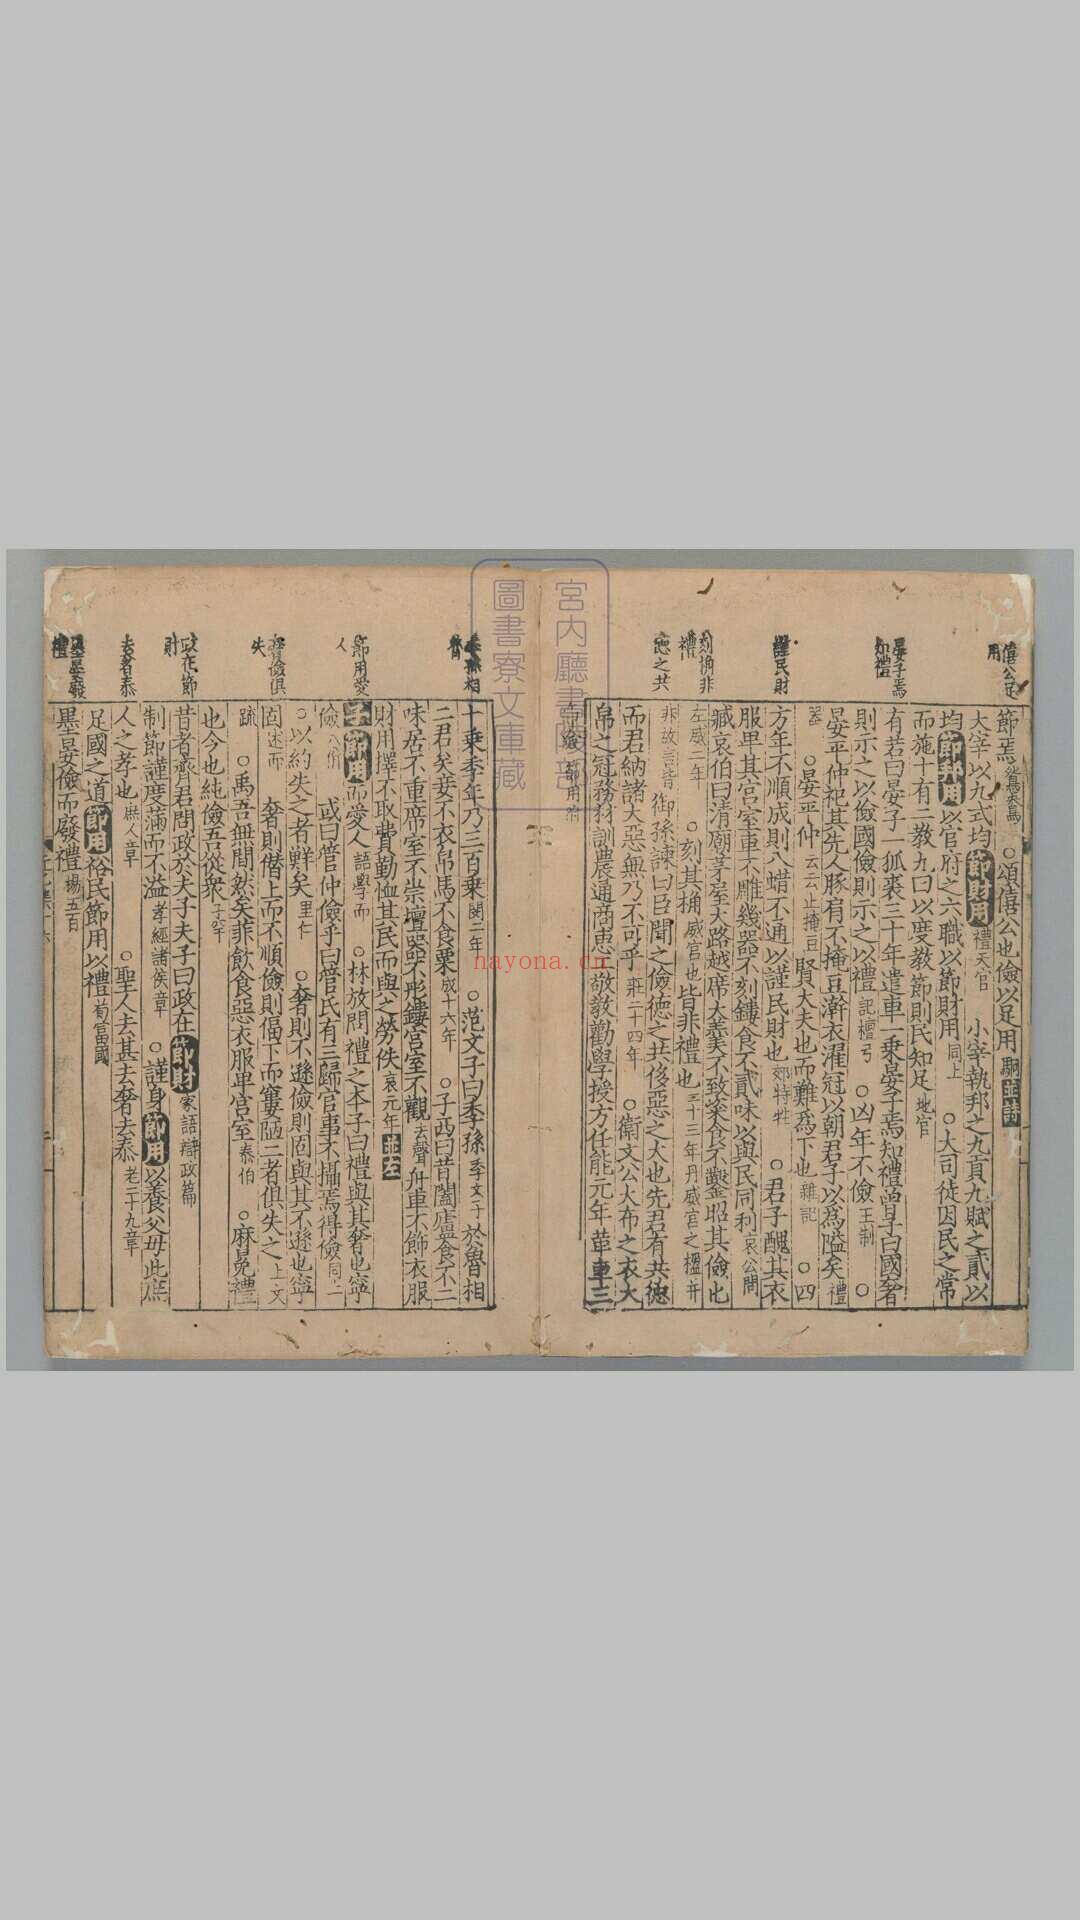 僖公足用
晏子焉知禮
謹民財
刻桷非禮
德之共
節焉
○頌僖公也儉以足用駉並詩
大宰以九式均節財用禮天官 小宰執邦之九貢九賦之貳以
均節邦用以官府之六職以節財用同上 ○大司徒因民之常
而施十有二教九曰以度教節則民知足地官
有若曰晏子一狐裘三十年遣車一乗晏子焉知禮曽子曰國奢
則示之以儉國儉則示之以禮記檀弓 ○凶年不儉王制 ○
晏平仲祀其先人豚肩不掩豆澣衣濯冠以朝君子以為隘矣禮
器 ○晏平仲云云止掩豆 賢大夫也而難為下也雜記 ○四
方年不順成則八蜡不通以謹民財也郊特牲 ○君子醜其衣
服卑其宮室車不雕幾器不刻鏤食不貳味以與民同利哀公問
臧哀伯曰清廟茅屋大路越席大羮不致粢食不鑿昭其儉也
左威二年 ○刻其桷威宮也皆非禮也三十三年丹威宮之楹并
非故言皆 御孫諫曰臣聞之儉德之共侈惡之大也先君有共德
而君納諸大惡無乃不可乎莊二十四年 ○衛文公大布之衣大
帛之冠務材訓農通商惠工敬教勸學授方任能元年革車三
宮內廳書陵部
圖書寮文庫藏
nayona.cn
季孫相魯
節用愛人
奢儉俱失
政在節財
去奢泰
墨晏廢禮
十乗季年乃三百乗閔二年 ○范文子曰季孫季文子於魯相
二君矣妾不衣帛馬不食粟成十六年 ○子西曰昔闔廬食不二
味居不重席室不崇壇器不彤鏤宮室不觀去聲舟車不飾衣服
財用擇不取費勤恤其民而與之勞佚哀元年並左
子節用而愛人語學而 ○林放問禮之本子曰禮與其奢也寧
儉八佾 或曰管仲儉乎曰管氏有三歸官事不攝焉得儉同上
○以約失之者鮮矣里仁 ○奢則不遜儉則固與其不遜也寧
固述而 奢則僭上而不順儉則偪下而窶陋二者俱失之上文
疏 ○禹吾無間然矣菲飲食惡衣服卑宮室泰伯 ○麻冕禮
也今也純儉吾從衆子罕
昔者齊君問政於夫子夫子曰政在節財家語辯政篇
制節謹度滿而不溢孝經諸侯章 ○謹身節用以養父母此庶
人之孝也庶人章 ○聖人去甚去奢去泰老二十九章
足國之道節用裕民節用以禮荀富國
墨晏儉而廢禮揚五百